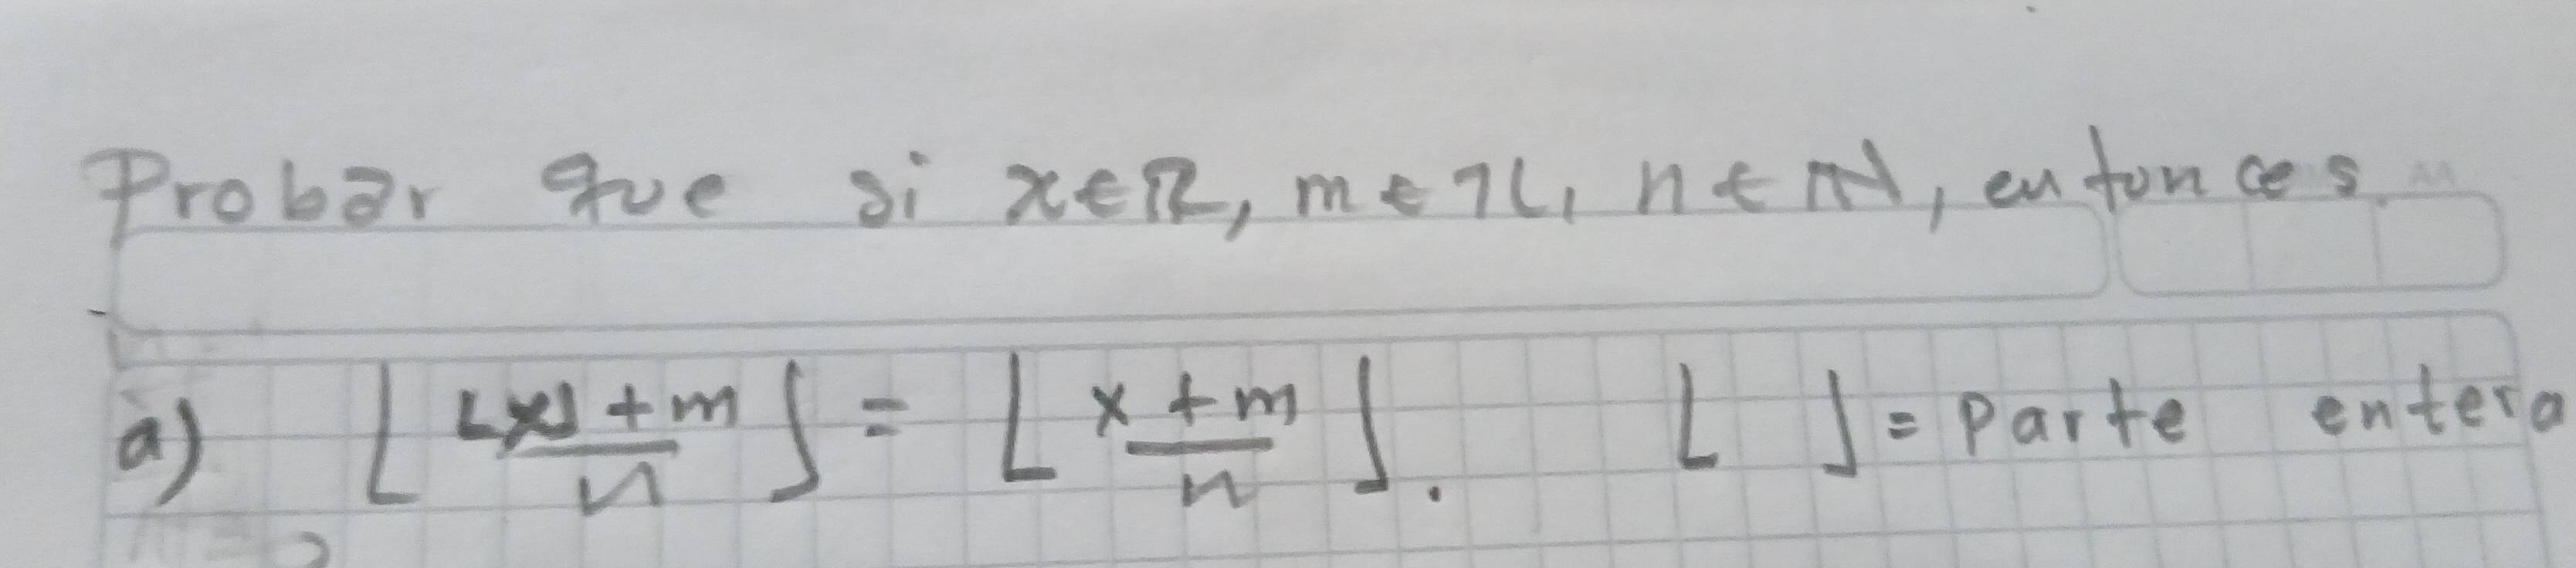 Probar que si x∈ℝ, m∈ℤ, n∈ℕ, entonces
a) ⌊(⌊x⌋+m)/n⌋ = ⌊(x+m)/n⌋. ⌊ ⌋ = Parte entera